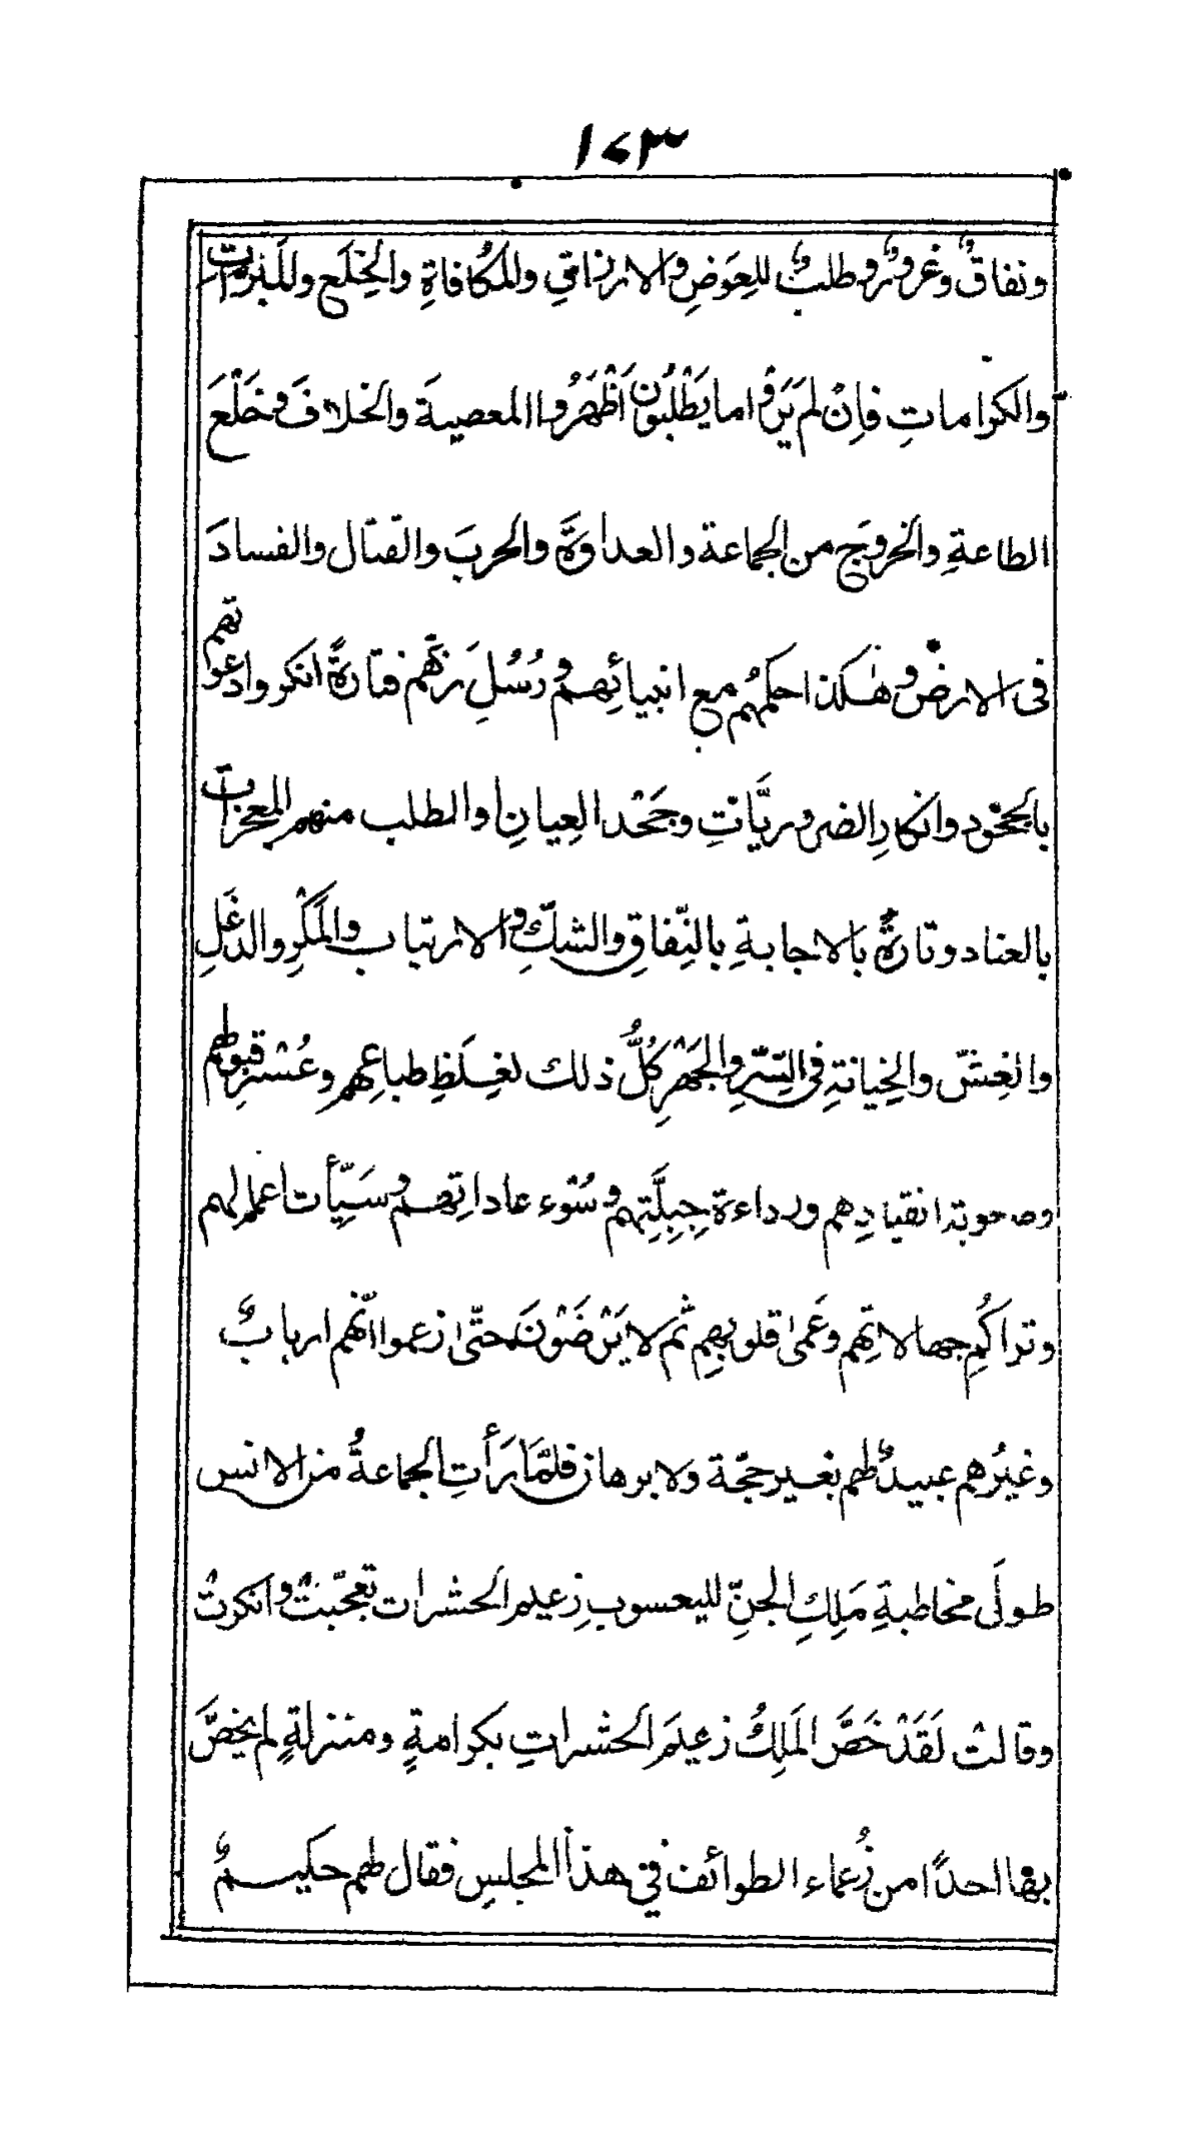 ١٤٣
ونفاقٌ وغرورٌ وطلبٌ للعِوَضِ والارزاقِ والمكافاةِ والخِلَعِ وللبذوات
والكرامات فاِنْ لم يَرَوْا ما يَطْلُبُون اَظْهَرُوا المعصيةَ والخلافَ وخَلْعَ
الطاعةِ والخروجَ من الجماعة والعداوةَ والحربَ والقتال والفسادَ
فى الارض وهٰكذا حكمُهم مع انبيائِهم ورُسُلِ ربّهم فتارةً انكروا دعوتهم
بالجحود وانكارِ الضروريَّاتِ وجَحْد العِيانِ او الطلب منهم المعجزات
بالعناد وتارةً بالاجابةِ بالنِّفاقِ والشكِّ والارتياب والمَكْرِ والدغَلِ
والغِشّ والخِيانةِ فى السِّرِ والجَهْرِ كُلُّ ذلك لغِلَظِ طباعِهم وعُسْرِ قبولهم
وصعوبة انقيادِهم ورداءة جِبِلَّتِهم وسُوْء عاداتِهم وسَيِّأت اعمالهم
وتراكُمِ جهالاتِهم وعَمىٰ قلوبِهِم ثم لا يَرْضَوْنَ حتّىٰ زعموا انّهم اربابٌ
وغيرُهم عبيدٌ لهم بغير حجّة ولا برهان فلمَّا رَأتِ الجماعةُ من الانس
طولَ مخاطبةِ مَلِكِ الجنِّ لليعسوبِ زعيم الحشرات تعجّبتْ وانكرتْ
وقالتْ لَقَدْ خَصَّ المَلِكُ زعيمَ الحشراتِ بكرامةٍ ومنزلةٍ لم يخصَّ
بها احدًا من زُعماء الطوائف فى هذا المجلسِ فقال لهم حكيمٌ